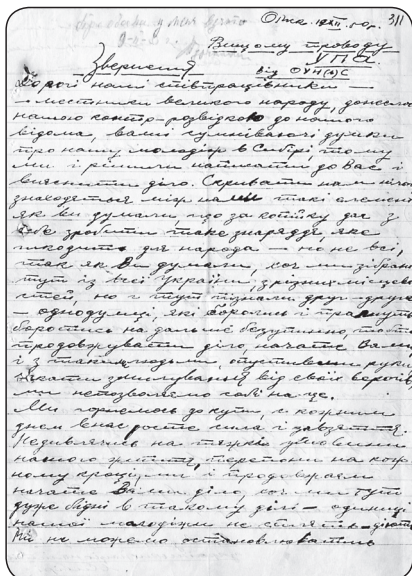 Омск 19 XII - 50 р.
311
Вищому проводу
УПА.
Звернення
від ОУН(б)С
Дорогі наші співпрацівники —
— местники великого народу, донесли
нашою контр-розвідкою до нашого
відома, ваші сумніваючі думки
про нашу молодіж в Сибірі, тому
ми і рішили написати до Вас і
вияснити діло. Скривати нам нічого
знаходяться між нами такі елементи
як ви думали, що за копійку дає з
себе зробити таке знаряддя, яке
шкодить для народа — но не всі,
так як Ви думали, хоч ми зібрані
тут із всеї України, з різних місцевос-
тей, но і тут пізнали друг-друга
— однодумці, які борсь і прагнуть
боротись на дальше безупинно, тобто
продовжувати діло, начате Вами
і з такими людьми, опустивши руки
ждати помилування від своїх ворогів,
ми непозволяємо собі на це.
Ми горнемось до купи, с кожним
днем в нас росте сила і завзяття.
Недивлячись на тяжкі умовини
нашого життя, перепони на кож-
ному кроці, ми і продовжаєм
начате Вами діло, хоч ми тут
дуже бідні в такому ділі — одиниці
нашої молодіжи не сплять — діють
Ми не можемо остановлюватись